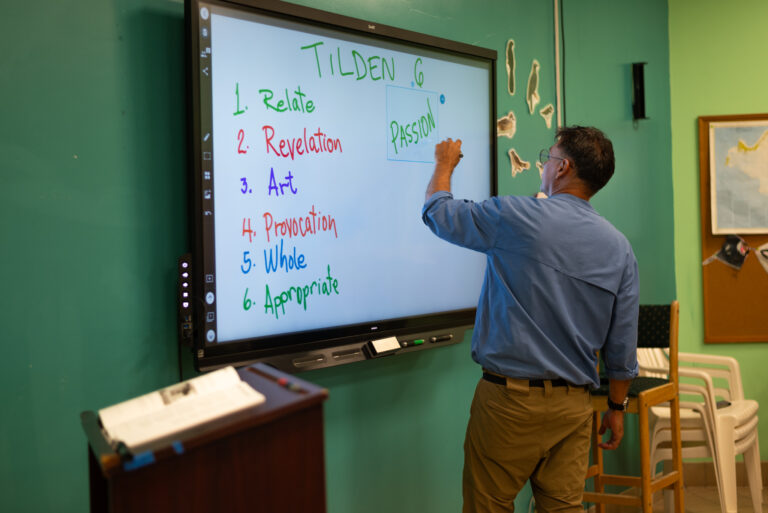 TILDEN 6
1. Relate
2. Revelation
3. Art
4. Provocation
5. Whole
6. Appropriate
PASSION